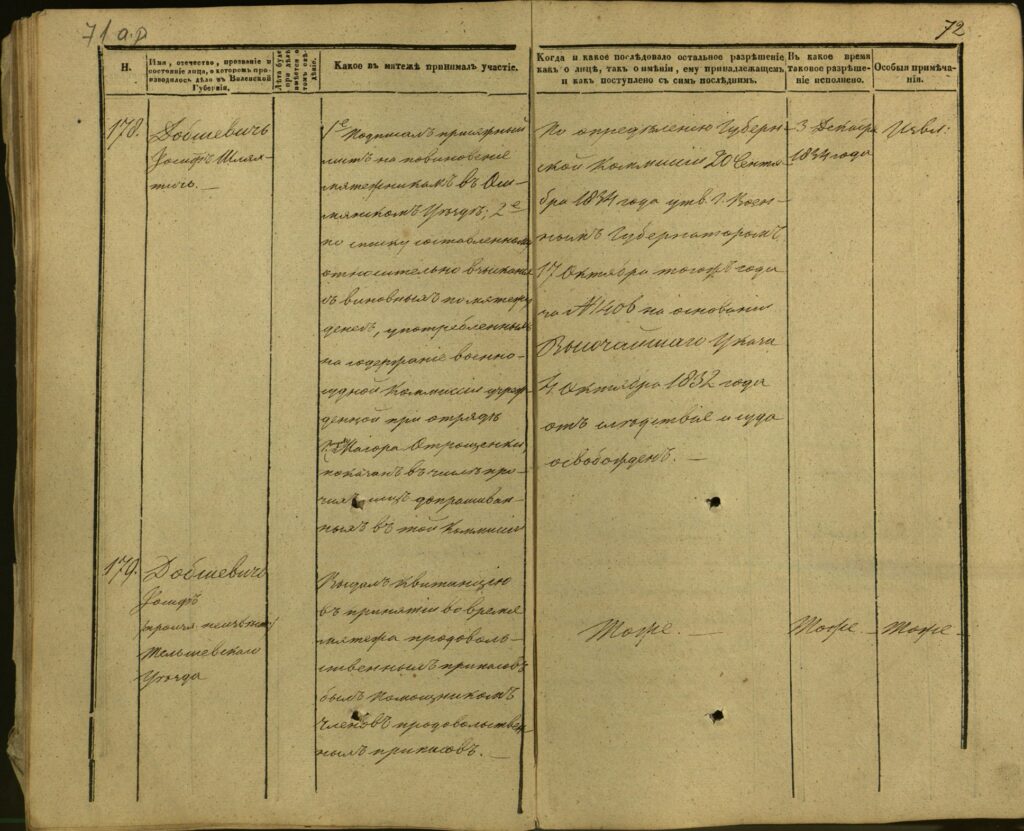 71 а.р
72
Н.
Имя, отечество, прозваніе и
состояніе лица, о которомъ про-
изводилось дѣло въ Виленской
Губерніи.
Какое въ мятежѣ принималъ участіе.
Когда и какое послѣдовало остальное разрѣшеніе
какъ о лицѣ, такъ о имѣніи, ему принадлежащемъ
и какъ поступлено съ симъ послѣднимъ.
Въ какое время
таковое разрѣше-
ніе исполнено.
Особыя примѣча-
нія.
178.
Добшевичъ
Іосифъ Шлях-
тичь. —
1е Подписалъ присяжный
листъ на повиновеніе
мятежникомъ въ Ош-
мянскомъ Уѣздѣ; 2е
по списку составленному
относительно взыскані
съ виновныхъ по мятежу
денегъ, употребленныхъ
на содержаніе военно-
судной Коммисіи учреж
денной при отрядѣ
Маіора Отрощенки,
показанъ въ числѣ про-
чихъ лицъ допрашиван-
ныхъ въ той Коммисіи
По опредѣленію Губерн-
ской Коммисіи 20 Сентя
бря 1834 года утв. Г. Воен-
нымъ Губернаторомъ
17 Октября тогожъ года
за № 1406 на основаніи
Высочайшаго Указа
4 Октября 1832 года
отъ слѣдствія и суда
освобожденъ. —
3 Декабря
1834 года
179.
Добшевичъ
Іосифъ
Тельшевскаго
Уѣзда
Выдалъ квитанцію
въ принятіи во время
мятежа продоволь-
ственныхъ припасовъ
былъ помощникомъ
членовъ продовольствен
ныхъ припасовъ. —
Тоже. —
Тоже. —
Тоже —